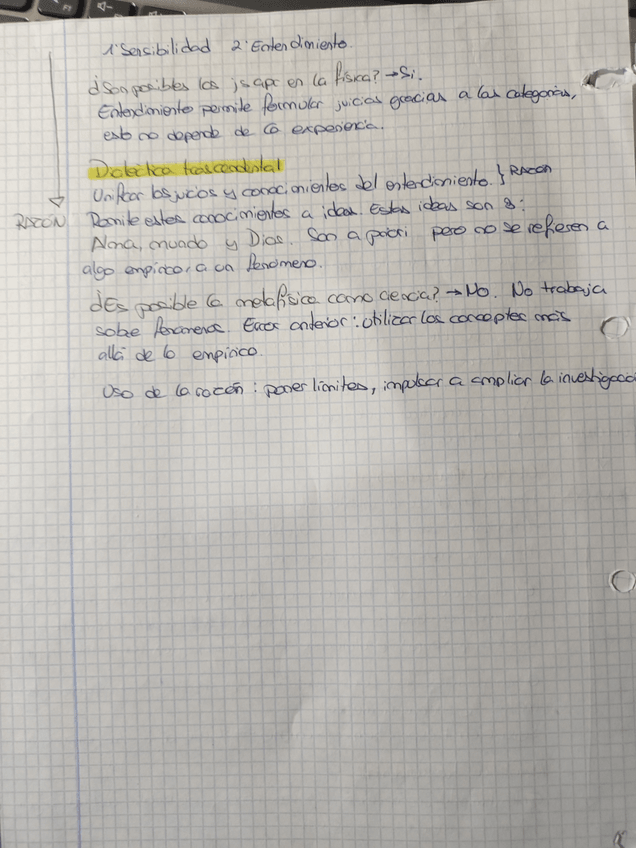 1. Sensibilidad 2. Entendimiento.
¿Son posibles los js apr en la física? → Sí.
Entendimiento permite formular juicios gracias a las categorías,
esto no depende de la experiencia.
Dialéctica trascendental
Unificar los juicios y conocimientos del entendimiento. } RAZÓN
RAZÓN Remite estos conocimientos a ideas. Estas ideas son 3:
Alma, mundo y Dios. Son a priori pero no se refieren a
algo empírico, a un fenómeno.
¿Es posible la metafísica como ciencia? → No. No trabaja
sobre fenómenos. Error anterior: utilizar los conceptos más
allá de lo empírico.
Uso de la razón: poner límites, impulsar a ampliar la investigació